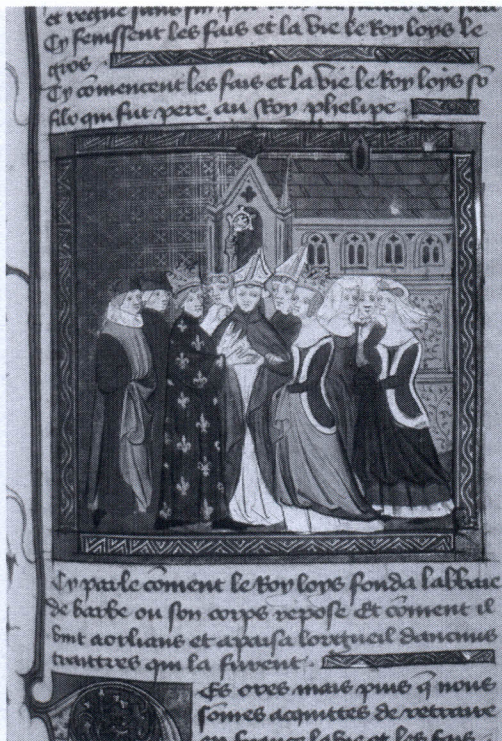 et regne sans fin
Cy fenissent les fais et la vie le Roy loys le
gros
Cy cōmencent les fais et la vie le Roy loys sō
filz qui fut pere au Roy phelipe
Cy parle cōment le Roy loys fonda labbaie
de barbe ou son corps repose Et cōment il
vint aorlians et apaisa lorgueil daucuns
traittres qui la furent
Es ores mais puis q̄ nous
somes acquittes de retraire